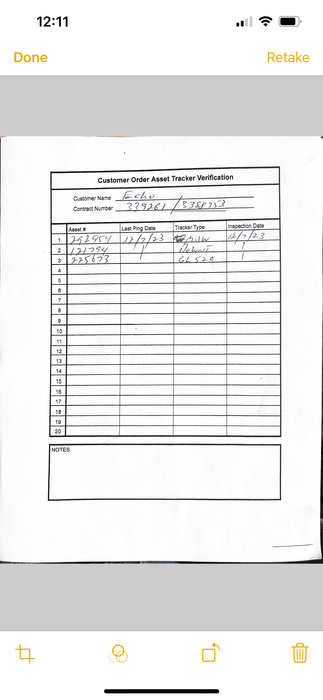 12:11
Done
Retake
Customer Order Asset Tracker Verification
Customer Name Echo
Contract Number 339261 /
Asset # Last Ping Date Tracker Type Inspection Date
1 292954 12/7/23 12/7/23
2 121794
3 225673 GL 520
4
5
6
7
8
9
10
11
12
13
14
15
16
17
18
19
20
NOTES